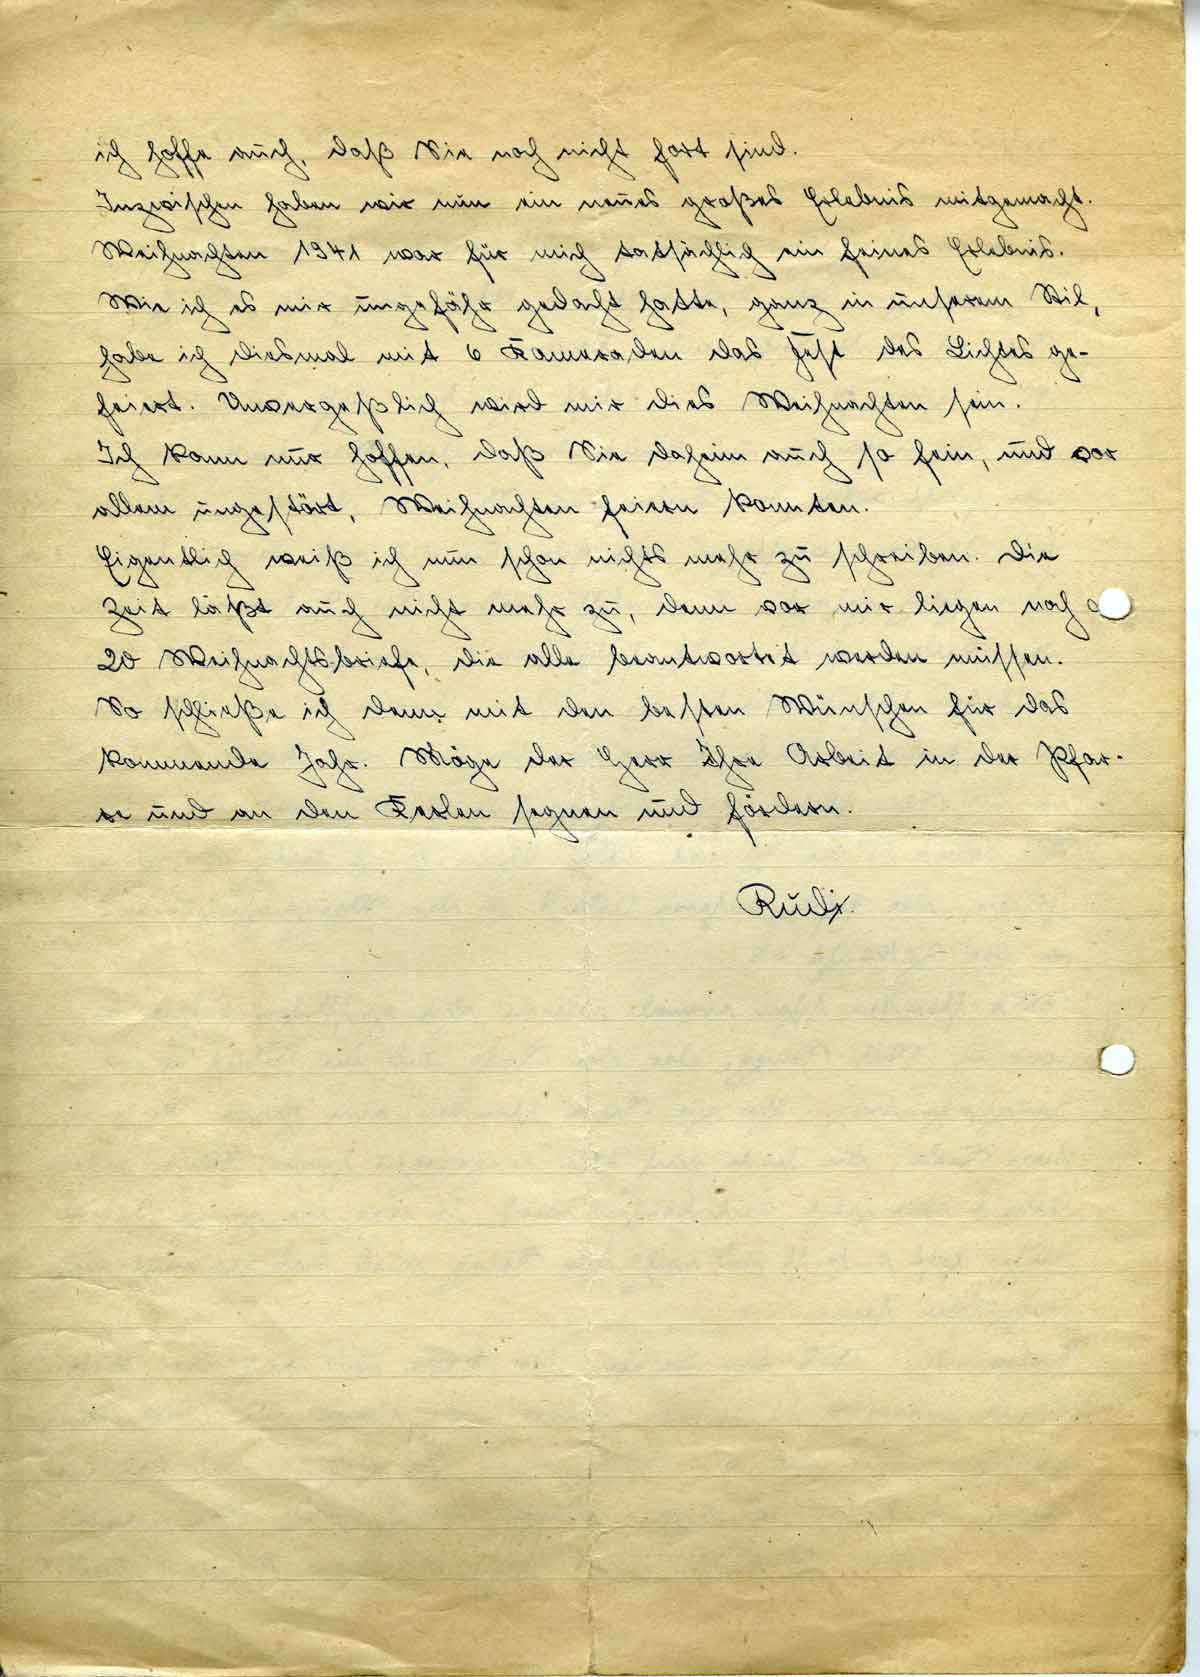 ich hoffe auch, daß Sie noch nicht fort sind.
Inzwischen haben wir nun ein neues großes Erlebnis mitgemacht.
Weihnachten 1941 war für mich tatsächlich ein feines Erlebnis.
Wie ich es mir ungefähr gedacht hatte, ganz in unserem Stil,
habe ich diesmal mit 6 Kameraden das Fest des Lichtes ge-
feiert. Unvergeßlich wird mir dies Weihnachten sein.
Ich kann nur hoffen, daß Sie daheim auch so fein, und vor
allem ungestört, Weihnachten feiern konnten.
Eigentlich weiß ich nun schon nichts mehr zu schreiben. Die
Zeit läßt auch nicht mehr zu, denn vor mir liegen noch
20 Weihnachtsbriefe, die alle beantwortet werden müssen.
So schließe ich denn mit den besten Wünschen für das
kommende Jahr. Möge der Herr Ihre Arbeit in der Pfar-
re und an den Kerlen segnen und fördern.
Rudi.